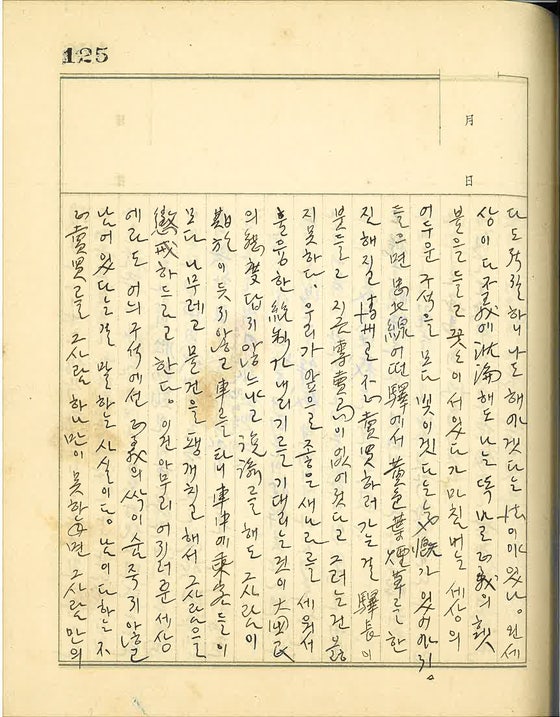 125
月
日
다 도적질하니 나도 해야겠다는 법이 있나. 왼 세
상이 다 不義에 沈淪해도 나는 똑바로 正義의 횃
불을 들고 꼿꼿이 서 있다가 미친 버는 세상의
어두운 구석을 모다 빛이겠다는 는 慨가 있어야지.
들으면 忠北線 어떤 驛에서 黃色葉煙草를 한
진 해 질 로 不 賣買하러 가는 걸 驛長이
붙들고 지금 專賣局이 없어졌다고 그러는 건 옳
지 못하다. 우리가 앞으로 좋은 새나라를 세워서
훌륭한 統制가 내리기를 기대리는 것이 大國民
의 態度답지 않느냐고 說諭를 해도 그 사람이
듯지 않고 車를 타니 車中에 乘客들이
모다 나무래고 물건을 팽개질해서 그 사람을
懲戒하드라고 한다. 이전 아무리 어지러운 세상
에라도 어느 구석에선 正義의 싹이 숨죽지 않을
남어 있다는 걸 말하는 사실이다. 남이 다 하는 不
正賣買를 그 사람 하나만이 못하면 그 사람만의